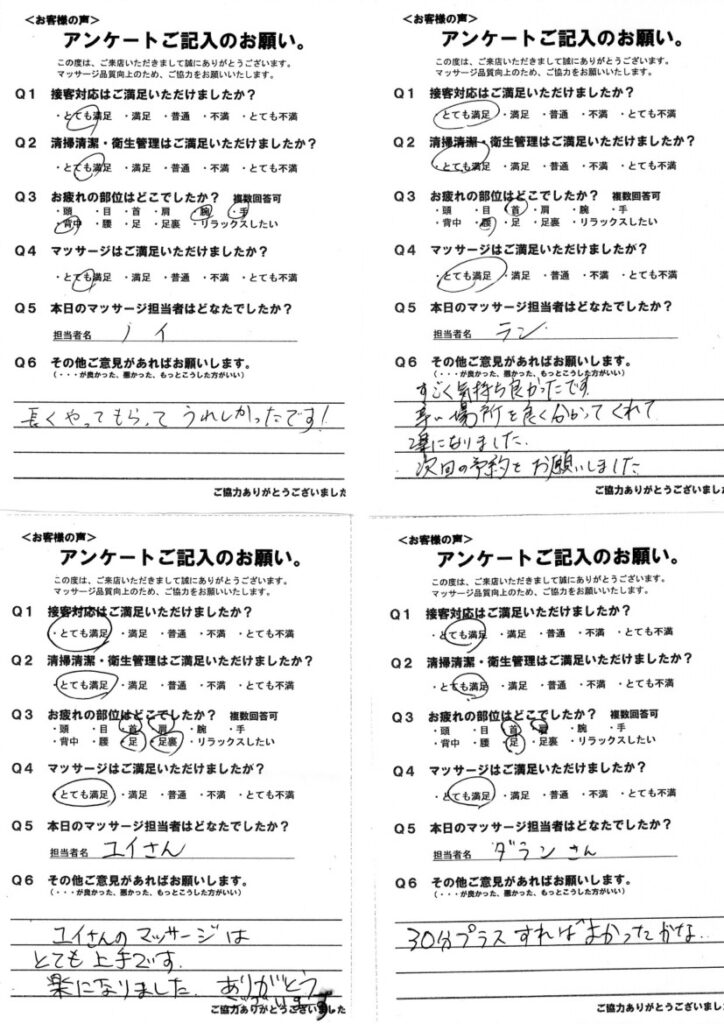 <お客様の声>
アンケートご記入のお願い。
この度は、ご来店いただきまして誠にありがとうございます。
マッサージ品質向上のため、ご協力をお願いいたします。
Q1 接客対応はご満足いただけましたか？
・とても満足 ・満足 ・普通 ・不満 ・とても不満
Q2 清掃清潔・衛生管理はご満足いただけましたか？
・とても満足 ・満足 ・普通 ・不満 ・とても不満
Q3 お疲れの部位はどこでしたか？ 複数回答可
・頭 ・目 ・首 ・肩 ・腕 ・手
・背中 ・腰 ・足 ・足裏 ・リラックスしたい
Q4 マッサージはご満足いただけましたか？
・とても満足 ・満足 ・普通 ・不満 ・とても不満
Q5 本日のマッサージ担当者はどなたでしたか？
担当者名 ノイ
Q6 その他ご意見があればお願いします。
（・・・が良かった、悪かった、もっとこうした方がいい）
長くやってもらって うれしかったです!
ご協力ありがとうございました
<お客様の声>
アンケートご記入のお願い。
この度は、ご来店いただきまして誠にありがとうございます。
マッサージ品質向上のため、ご協力をお願いいたします。
Q1 接客対応はご満足いただけましたか？
とても満足 ・満足 ・普通 ・不満 ・とても不満
Q2 清掃清潔・衛生管理はご満足いただけましたか？
・とても満足 ・満足 ・普通 ・不満 ・とても不満
Q3 お疲れの部位はどこでしたか？ 複数回答可
・頭 ・目 ・首 ・肩 ・腕 ・手
・背中 ・腰 ・足 ・足裏 ・リラックスしたい
Q4 マッサージはご満足いただけましたが？
・とても満足 ・満足 ・普通 ・不満 ・とても不満
Q5 本日のマッサージ担当者はどなたでしたか？
担当者名 ラン
Q6 その他ご意見があればお願いします。
（・・・が良かった、悪かった、もっとこうした方がいい）
すごく気持ち良かったです
辛い場所を良く分かってくれて
楽になりました.
次回の予約を お願いしました
ご協力ありがとうございました
<お客様の声>
アンケートご記入のお願い。
この度は、ご来店いただきまして誠にありがとうございます。
マッサージ品質向上のため、ご協力をお願いいたします。
Q1 接客対応はご満足いただけましたか？
・とても満足 ・満足 ・普通 ・不満 ・とても不満
Q2 清掃清潔・衛生管理はご満足いただけましたか？
・とても満足 ・満足 ・普通 ・不満 ・とても不満
Q3 お疲れの部位はどこでしたか？ 複数回答可
・頭 ・目 ・首 ・肩 ・腕 ・手
・背中 ・腰 ・足 ・足裏 ・リラックスしたい
Q4 マッサージはご満足いただけましたか？
・とても満足 ・満足 ・普通 ・不満 ・とても不満
Q5 本日のマッサージ担当者はどなたでしたか？
担当者名 ユイさん
Q6 その他ご意見があればお願いします。
（・・・が良かった、悪かった、もっとこうした方がいい）
ユイさんのマッサージは
とても上手です.
楽になりました. ありがとう
ございます
ご協力ありがとうございました
<お客様の声>
アンケートご記入のお願い。
この度は、ご来店いただきまして誠にありがとうございます。
マッサージ品質向上のため、ご協力をお願いいたします。
Q1 接客対応はご満足いただけましたか？
・とても満足 ・満足 ・普通 ・不満 ・とても不満
Q2 清掃清潔・衛生管理はご満足いただけましたか？
・とても満足 ・満足 ・普通 ・不満 ・とても不満
Q3 お疲れの部位はどこでしたか？ 複数回答可
・頭 ・目 ・首 ・肩 ・腕 ・手
・背中 ・腰 ・足 ・足裏 ・リラックスしたい
Q4 マッサージはご満足いただけましたが？
・とても満足 ・満足 ・普通 ・不満 ・とても不満
Q5 本日のマッサージ担当者はどなたでしたか？
担当者名 ダランさん
Q6 その他ご意見があればお願いします。
（・・・が良かった、悪かった、もっとこうした方がいい）
30分プラスすればよかったかな.
ご協力ありがとうございました